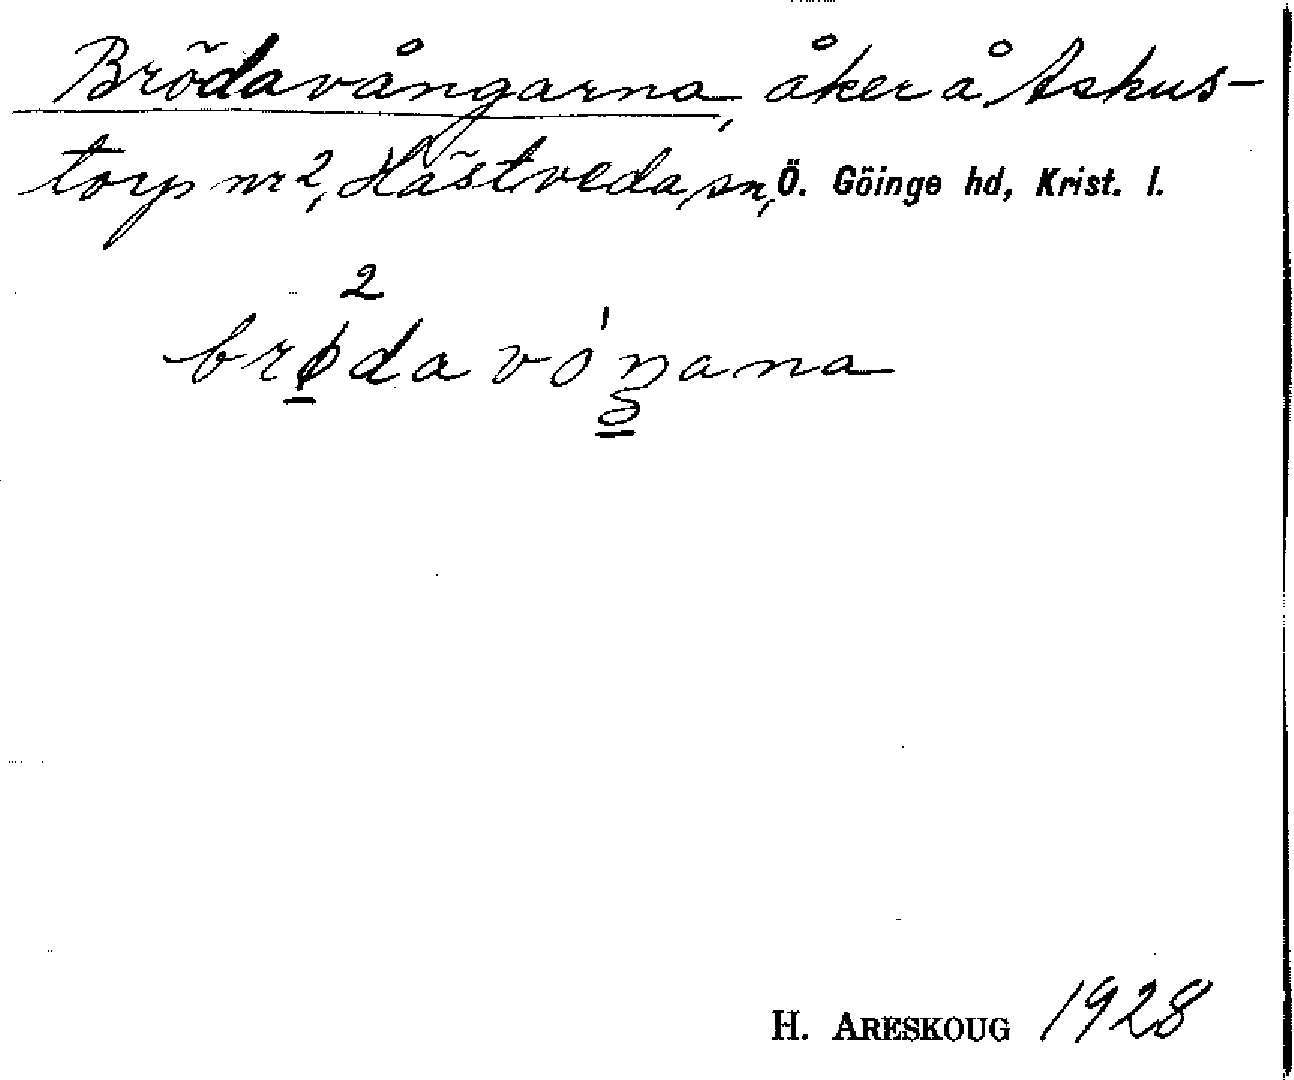 Brödavångarna, åker å Askus-
torp nr 2, Hästveda sn, Ö. Göinge hd, Krist. l.
2
brødavóŋana
H. ARESKOUG 1928